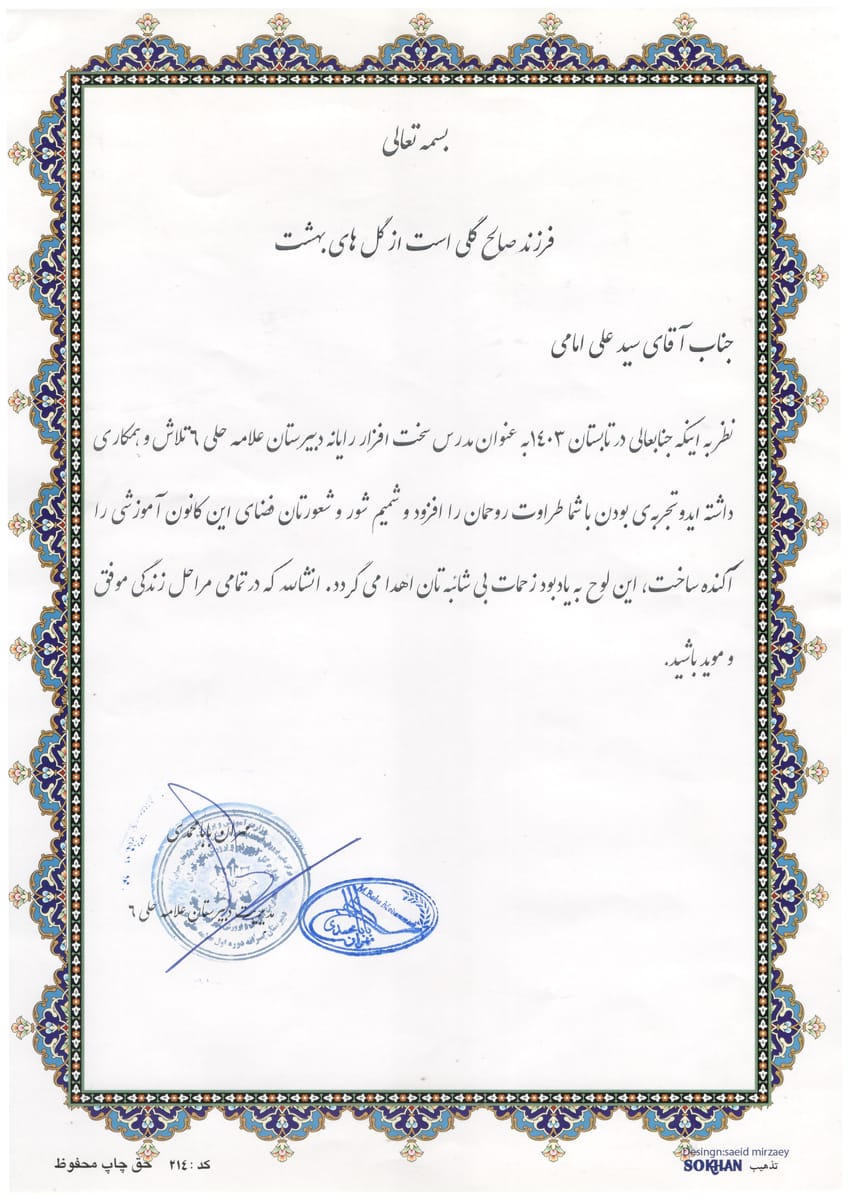 بسمه تعالی
فرزند صالح گلی است از گل های بهشت
جناب آقای سید علی امامی
نظر به اینکه جنابعالی در تابستان ۱۴۰۳به عنوان مدرس سخت افزار رایانه دبیرستان علامه حلی ۶ تلاش و همکاری
داشته ایدو تجربه ی بودن با شما طراوت روحمان را افزود و شمیم شور و شعورتان فضای این کانون آموزشی را
آکنده ساخت، این لوح به یادبود زحمات بی شائبه تان اهدا می گردد. انشالله که در تمامی مراحل زندگی موفق
و موید باشید.
مهران بابامحمدی
مدیریت دبیرستان علامه حلی ۶
M.Baba Mohammadi
مهران بابامحمدی
دبیرستان پسرانه دوره اول
Desingn:saeid mirzaey
تذهیب SOKHAN
کد : ۲۱۴ حق چاپ محفوظ